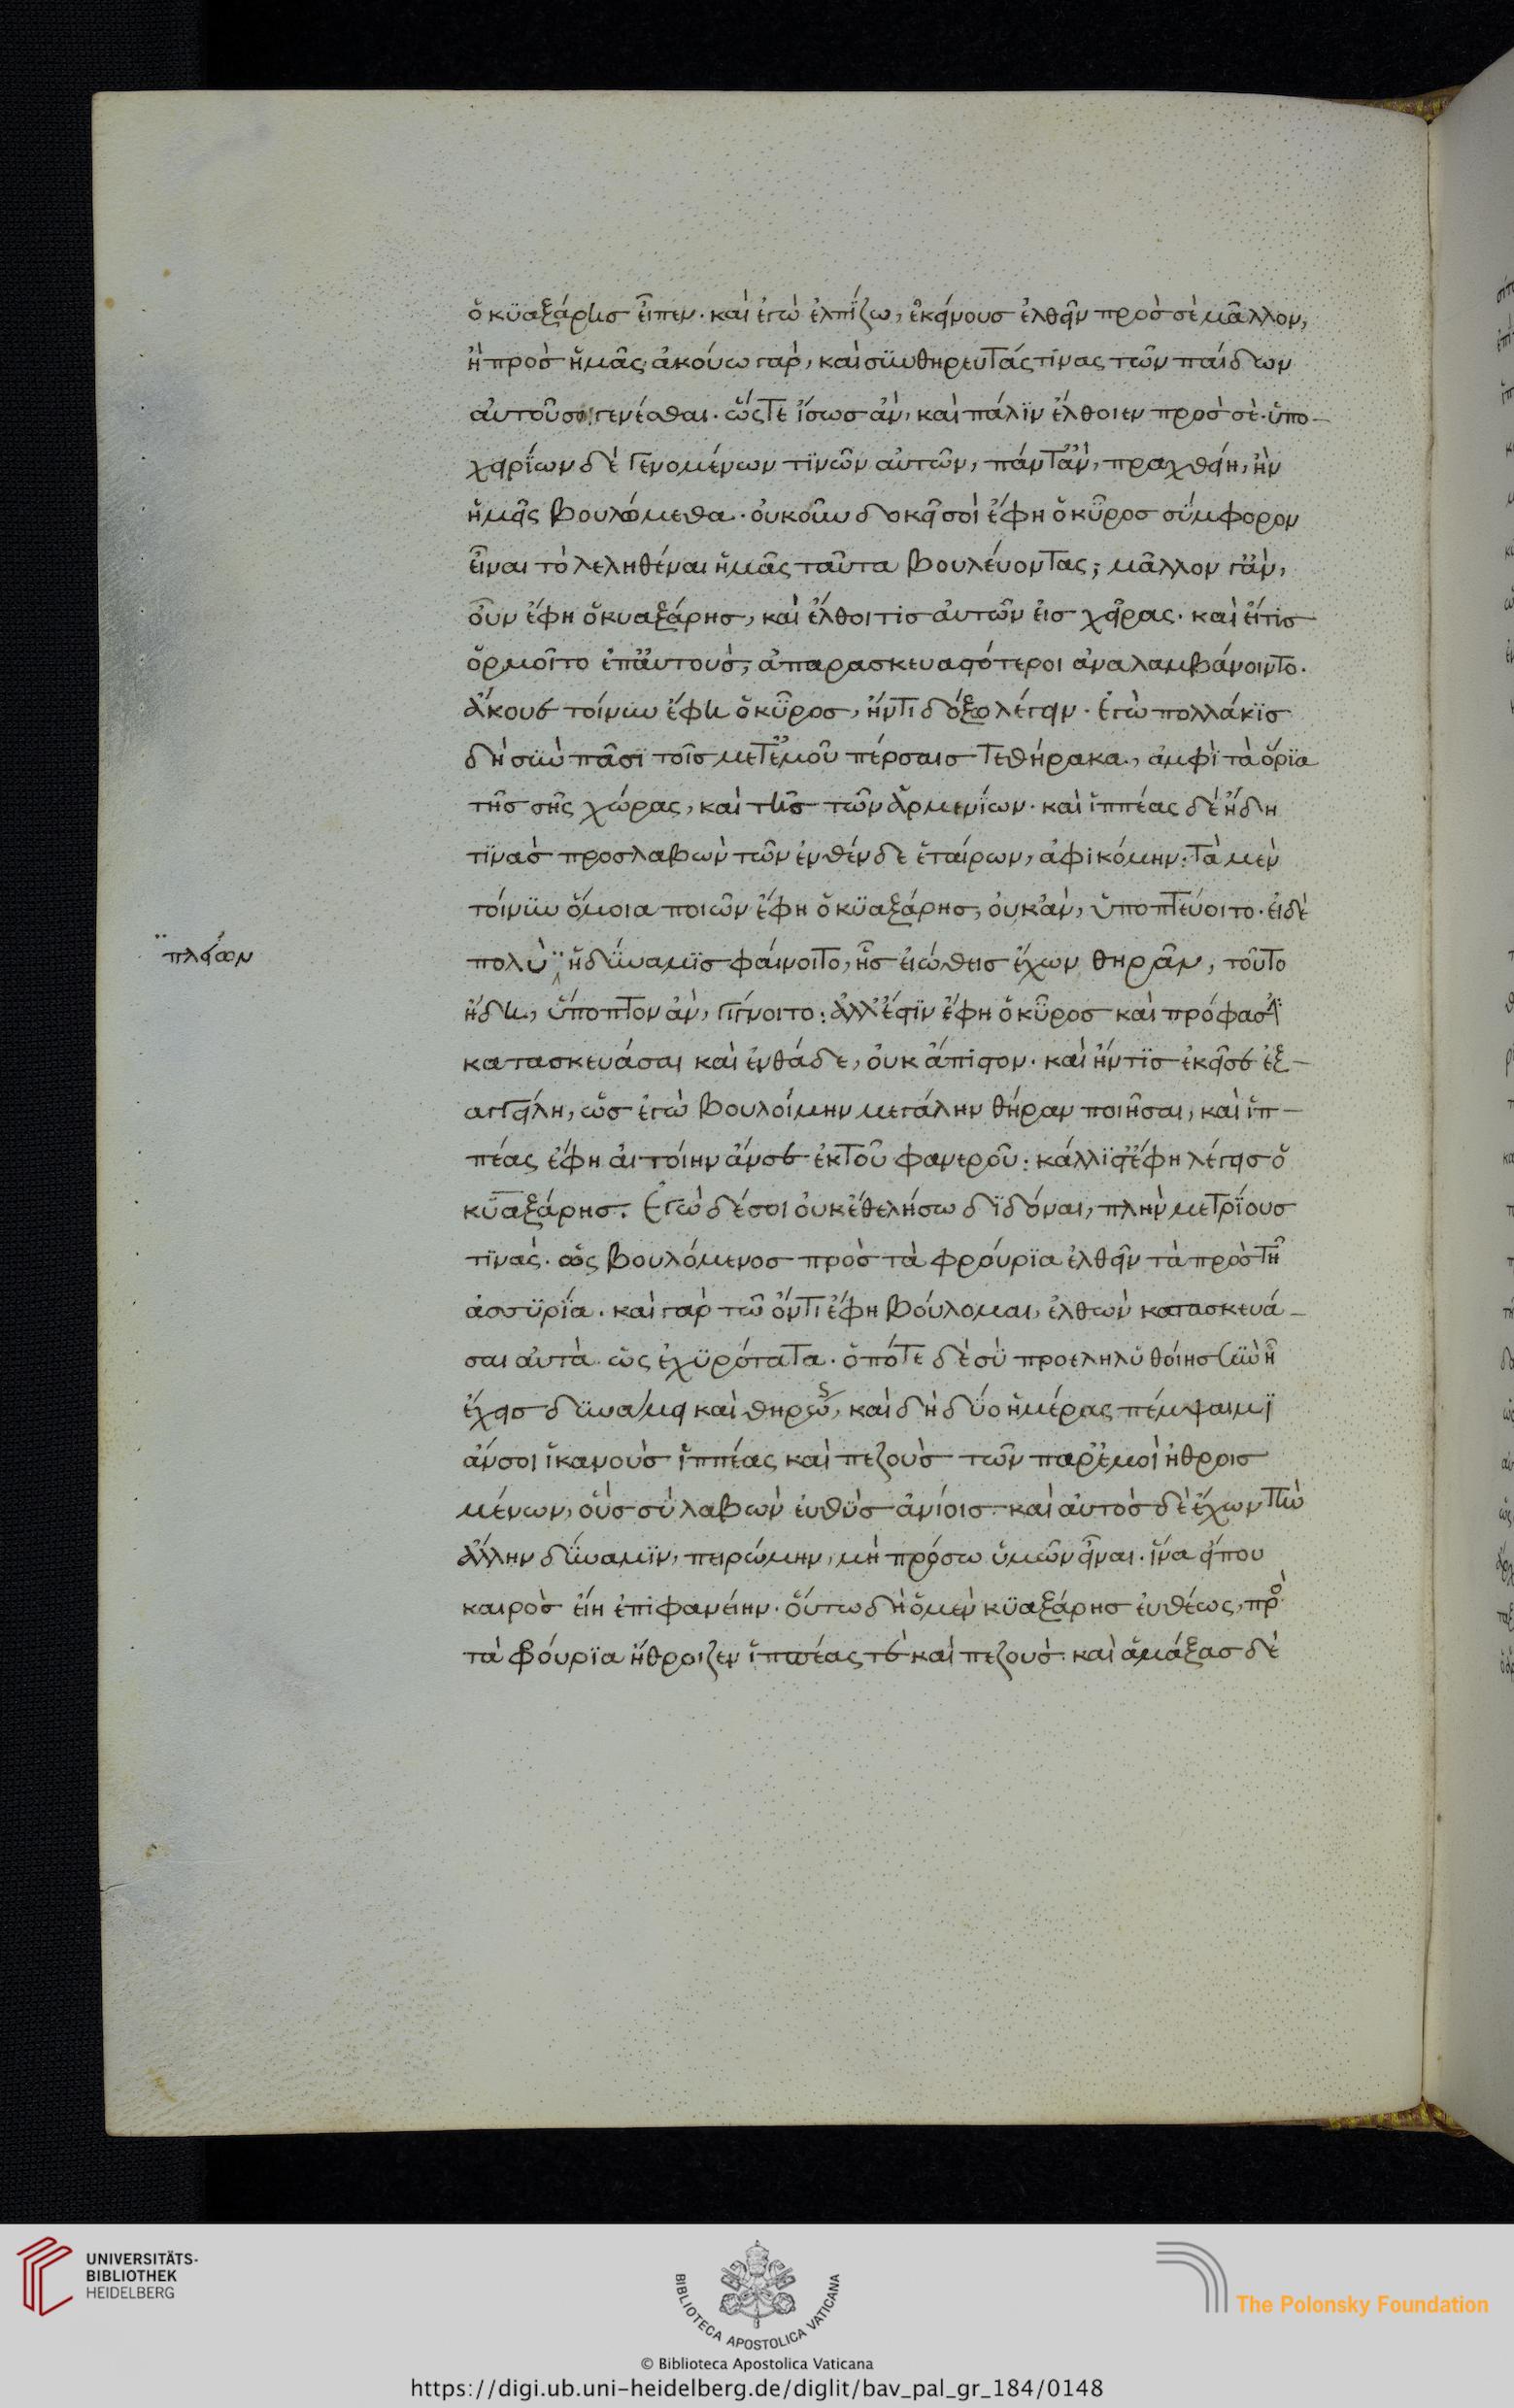 ὁ κϋαξάρης εἶπεν· καὶ ἐγὼ ἐλπίζω, ἐκείνους ἐλθεῖν πρὸς σὲ μᾶλλον,
ἢ πρὸς ἡμᾶς· ἀκούω γὰρ, καὶ συνθηρευτάς τινας τῶν παίδων
αὐτοῦ σοι γενέσθαι· ὥστε ἴσως ἂν, καὶ πάλιν ἔλθοιεν πρὸς σὲ· ὑπο-
χειρίων δὲ γενομένων τινῶν αὐτῶν, πάντ' ἂν, πραχθείη, ἣν
ἡμεῖς βουλόμεθα· οὐκοῦν δοκεῖ σοὶ ἔφη ὁ κῦρος σύμφορον
εἶναι τὸ λεληθέναι ἡμᾶς ταῦτα βουλεύοντας; μᾶλλον γ' ἂν,
οὖν ἔφη ὁ κυαξάρης, καὶ ἔλθοι τίς αὐτῶν εἰς χεῖρας· καὶ εἴτις
ὁρμοῖτο ἐπ' αὐτοὺς, ἀπαρασκευαστότεροι ἀναλαμβάνοιντο·
ἄκουε τοίνυν ἔφη ὁ κῦρος, ἤν τι δόξω λέγειν· Ἐγὼ πολλάκις
δὴ σὺν πᾶσι τοῖς μετ' ἐμοῦ πέρσαις τεθήρακα, ἀμφὶ τὰ ὅρια
τῆς σῆς χώρας, καὶ τῆς τῶν ἀρμενίων· καὶ ἱππέας δὲ ἤδη
τινὰς προσλαβὼν τῶν ἐνθένδε ἑταίρων, ἀφικόμην: Τὰ μὲν
τοίνυν ὅμοια ποιῶν ἔφη ὁ κϋαξάρης, οὐκ ἂν, ὑποπτεύοιτο· εἰ δὲ
πλείων
πολὺ ἡ δύναμις φαίνοιτο, ἧς εἰώθεις ἔχων θηρᾶν, τοῦτο
ἤδη, ὕποπτον ἂν, γίγνοιτο: ἀλλ' ἔστιν ἔφη ὁ κῦρος καὶ πρόφασιν
κατασκευάσαι καὶ ἐνθάδε, οὐκ ἄπιστον· καὶ ἤν τις ἐκεῖσε ἐξ-
αγγείλη, ὡς ἐγὼ βουλοίμην μεγάλην θήραν ποιῆσαι, καὶ ἱπ-
πέας ἔφη αἰτοίην ἄν σε ἐκ τοῦ φανεροῦ: κάλλιστ' ἔφη λέγεις ὁ
κϋαξάρης. Ἐγὼ δέ σοι οὐκ ἐθελήσω διδόναι, πλὴν μετρίους
τινὰς· ὡς βουλόμενος πρὸς τὰ φρούρια ἐλθεῖν τὰ πρὸς τῆ
ἀσσυρία· καὶ γὰρ τῶ ὄντι ἔφη βούλομαι, ἐλθὼν κατασκευά-
σαι αὐτὰ ὡς ἐχυρότατα· ὁπότε δὲ σὺ προεληλυθοίης σὺν ἧ
ἔχεις δυνάμει καὶ θηρώης, καὶ δὴ δύο ἡμέρας πέμψαιμι
ἄν σοι ἱκανοὺς ἱππέας καὶ πεζοὺς τῶν παρ' ἐμοὶ ἠθροισ
μένων, οὓς σὺ λαβὼν εὐθὺς ἀνίοις· καὶ αὐτὸς δὲ ἔχων τὴν
ἄλλην δύναμιν, πειρώμην, μὴ πρόσω ὑμῶν εἶναι· ἵνα εἴπου
καιρὸς εἴη ἐπιφανείην· οὕτω δὴ ὁ μὲν κϋαξάρης εὐθέως, πρὸς
τὰ φρούρια ἤθροιζεν ἱππέας τὲ καὶ πεζοὺς· καὶ ἁμάξας δὲ
UNIVERSITÄTS-
BIBLIOTHEK
HEIDELBERG
BIBLIOTECA APOSTOLICA VATICANA
The Polonsky Foundation
© Biblioteca Apostolica Vaticana
https://digi.ub.uni-heidelberg.de/diglit/bav_pal_gr_184/0148